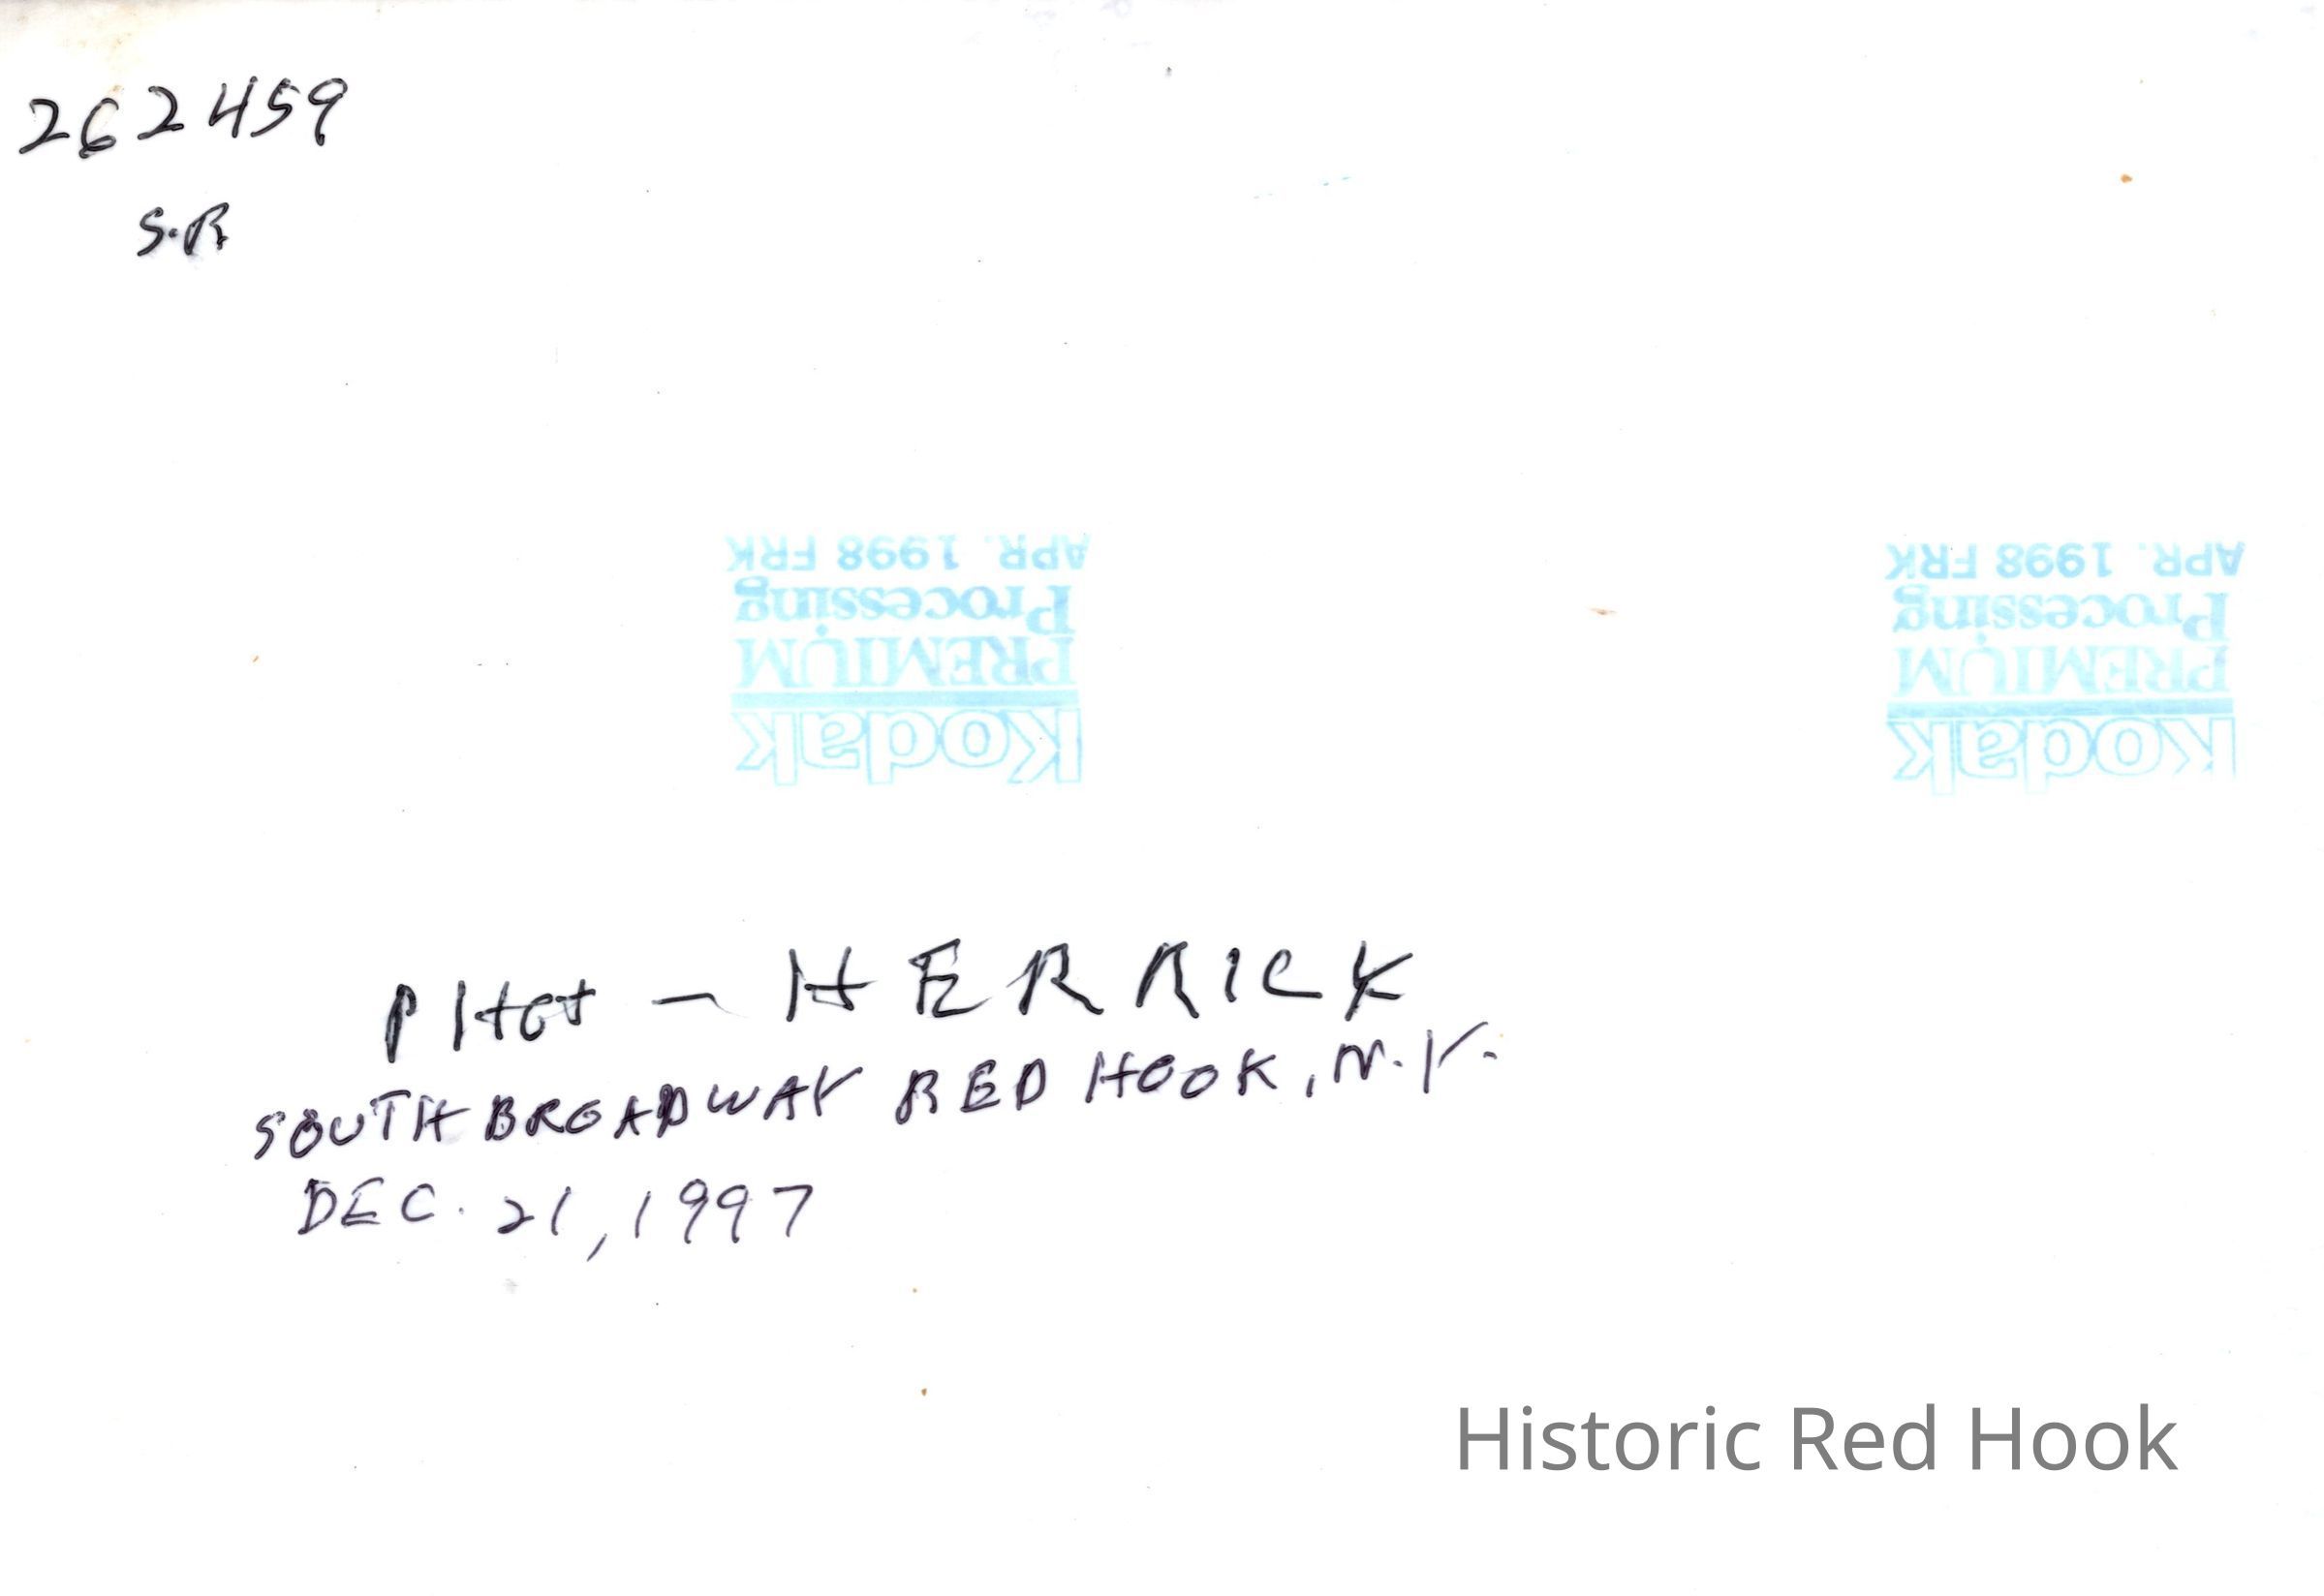 262459
S.R
APR. 1998 FRK
Processing
PREMIUM
Kodak
APR. 1998 FRK
Processing
PREMIUM
Kodak
PHOT — HERRICK
SOUTH BROADWAY RED HOOK, N.Y.
DEC. 21, 1997
Historic Red Hook